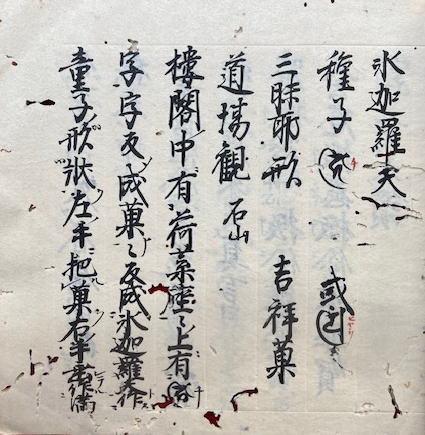 氷迦羅天
種子 或
三昧耶形 吉祥菓
道場観 石山
樓閣中有荷葉座〻上有
字字反成菓〻反成氷迦羅天作
童子形状左手把菓右手